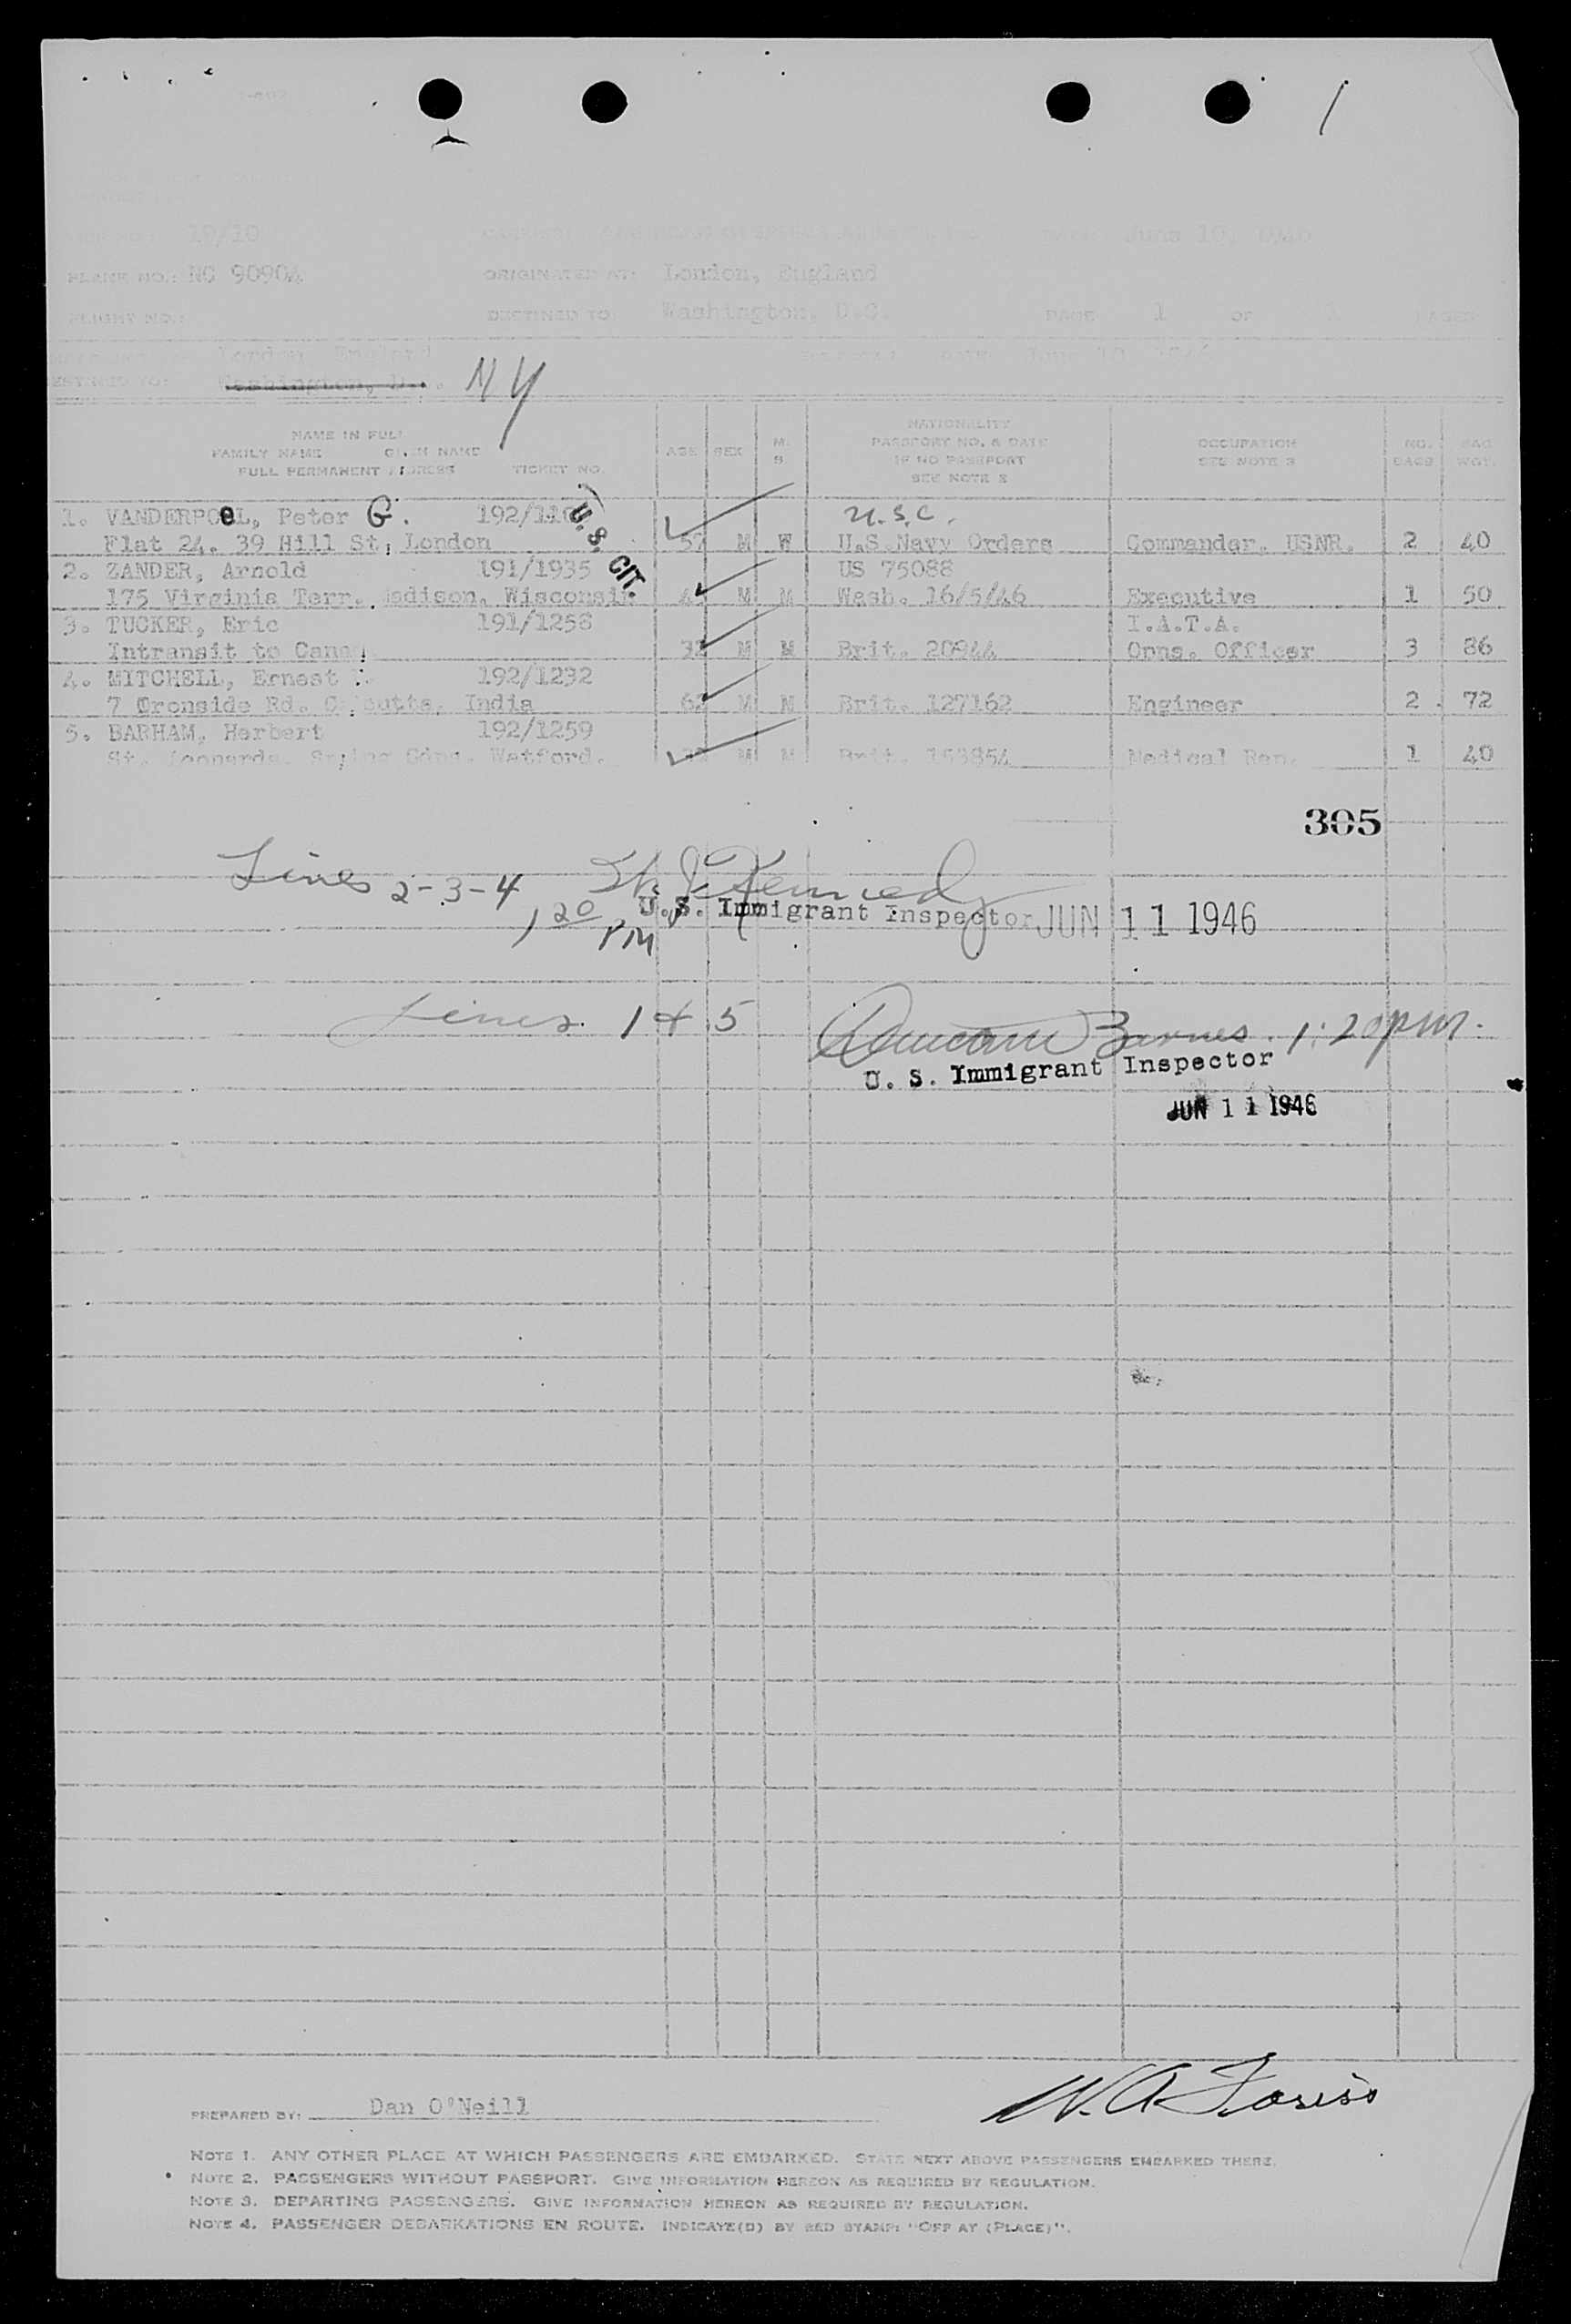 19/10 June 10, 1946
PLANE NO.: NC 90904 ORIGINATED AT: London, England
FLIGHT NO.: DESTINED TO Washington, D.C. PAGE 1 OF PAGES
London, England
DESTINED TO: Washington, D.C. NY
NAME IN FULL
FAMILY NAME GIVEN NAME
FULL PERMANENT ADDRESS TICKET NO.
AGE SEX M. S
NATIONALITY
PASSPORT NO. & DATE
IF NO PASSPORT
SEE NOTE 2
OCCUPATION
SEE NOTE 3
NO. BAGS
BAG WGT.
1. VANDERPOeL, Peter G. U.S.C.
Flat 24. 39 Hill St, London 57 M W U.S.Navy Orders Commander, USNR. 2 40
U.S. CIT.
2. ZANDER, Arnold 191/1935 US 75088
175 Virginia Terr. Madison, Wisconsin M M Wash. 16/5/46 Executive 1 50
3. TUCKER, Eric 191/1258 I.A.T.A.
Intransit to Canada M M Brit. 20944 Opns. Officer 3 86
4. MITCHELL, Ernest 192/1232
7 Cronside Rd. Calcutta, India 62 M M Brit. 127162 Engineer 2 72
5. BARHAM, Herbert 192/1259
St. Leonards, Gdns. Watford. M M Brit. 163854 Medical Rep. 1 40
305
Lines 2-3-4 Kennedy
1 20 PM U. S. Immigrant Inspector JUN 11 1946
Lines 1 & 5 Duncan Barnes 1:20 pm.
U. S. Immigrant Inspector
JUN 11 1946
PREPARED BY: Dan O'Neill
NOTE 1. ANY OTHER PLACE AT WHICH PASSENGERS ARE EMBARKED. STATE NEXT ABOVE PASSENGERS EMBARKED THERE.
NOTE 2. PASSENGERS WITHOUT PASSPORT. GIVE INFORMATION HEREON AS REQUIRED BY REGULATION.
NOTE 3. DEPARTING PASSENGERS. GIVE INFORMATION HEREON AS REQUIRED BY REGULATION.
NOTE 4. PASSENGER DEBARKATIONS EN ROUTE. INDICATE(D) BY RED STAMP: "OFF AT (PLACE)".